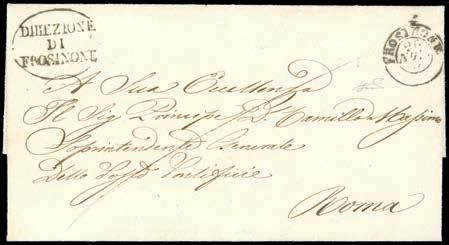 DIREZIONE
DI
FROSINONE
FROSINONE
A Sua Eccellenza
Il Sig Principe D. Camillo Massimo
Soprintendente Generale
Delle Poste Pontificie
Roma